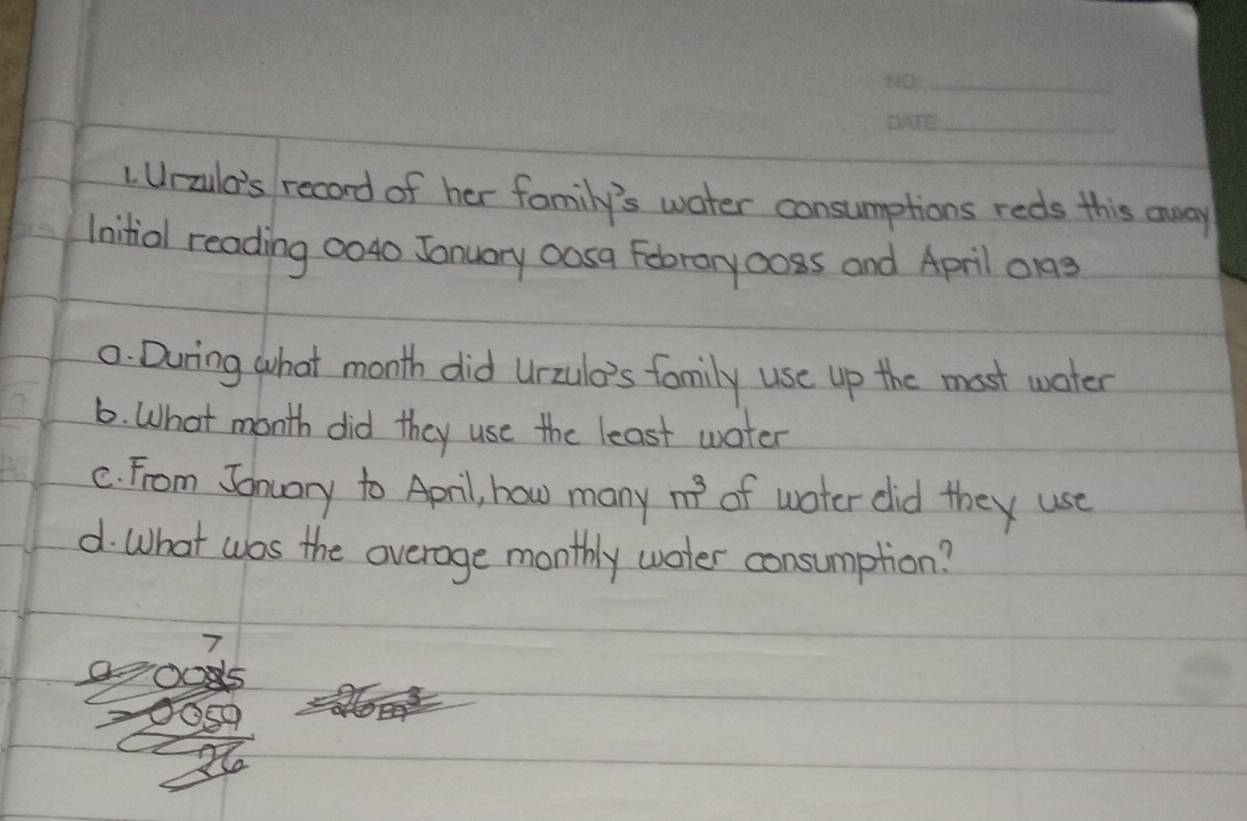 NO
DATE
1. Urzula's record of her family's water consumptions reds this away
Initial reading 0040 January 0059 Febrary 0085 and April 0193
a. During what month did Urzula's family use up the most water
b. What month did they use the least water
c. From January to April, how many m³ of water did they use
d. What was the average monthly water consumption?
7
a 0085
- 0059
26
26 m³